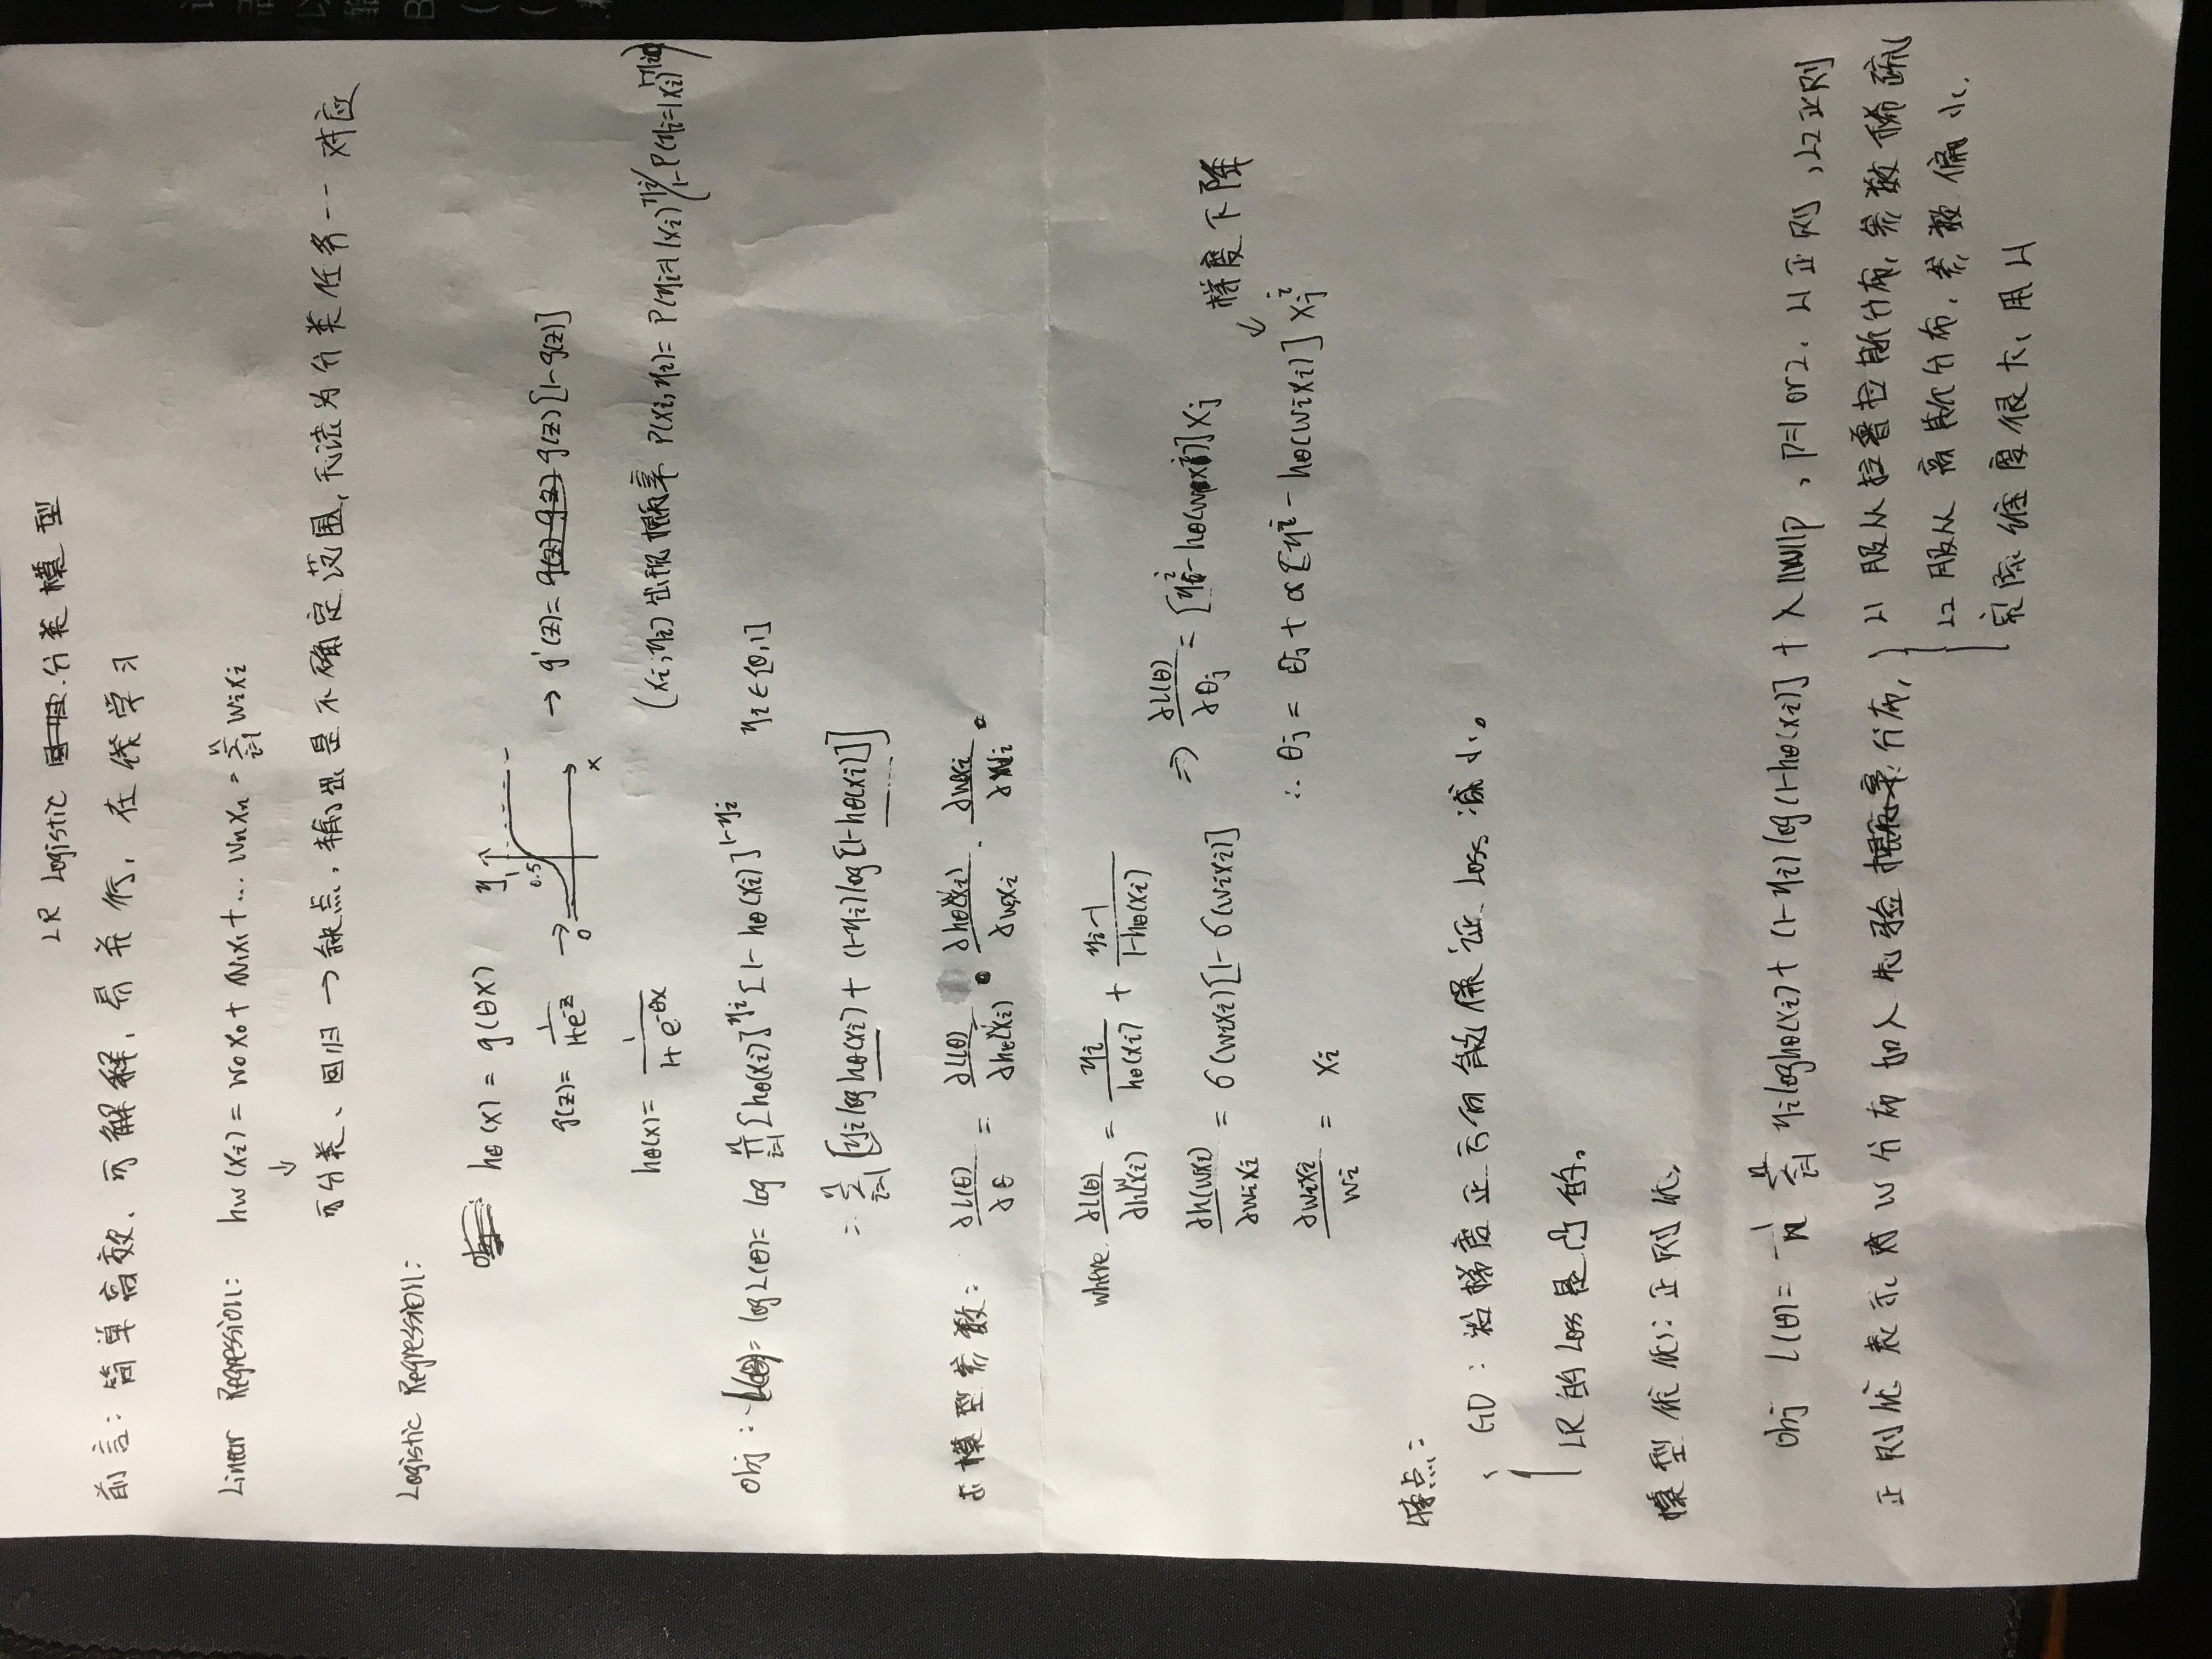 LR Logistic 分类模型
前言：简单高效、可解释、易并行、在线学习
Linear Regression: hw(xi) = w0x0 + w1x1 + ... wnxn = Σ_{i=1}^{n} wixi
↓
可分类、回归 → 缺点，输出是不确定范围，无法为分类任务一一对应
Logistic Regression:
hθ(x) = g(θx)
y 1 0.5 0 x
g(z) = 1/(1+e^{-z}) → → g'(z) = g(z)[1-g(z)]
hθ(x) = 1/(1+e^{-θx})
(xi, yi) 出现概率 P(xi, yi) = P(yi=1|xi)^{yi} (1-P(yi=1|xi))^{1-yi}
obj: L(θ) = log L(θ) = log Π_{i=1}^{n} [hθ(xi)]^{yi} [1-hθ(xi)]^{1-yi} yi∈{0,1}
= Σ_{i=1}^{n} [yi log hθ(xi) + (1-yi) log[1-hθ(xi)]]
求模型参数: ∂L(θ)/∂θ = ∂L(θ)/∂hθ(wxi) · ∂hθ(wxi)/∂wixi · ∂wixi/∂wi
where ∂L(θ)/∂h(wxi) = yi/hθ(xi) + (yi-1)/(1-hθ(xi))
∂h(wxi)/∂wixi = σ(wixi)[1-σ(wixi)] ⇒ ∂L(θ)/∂θj = [y^i - hθ(wxi)]xj
↓ 梯度下降
∂wixi/wi = xi ∴ θj = θj + α[y^i - hθ(wixi)] xj^i
特点:
GD: 沿梯度正方向能保证 Loss 减小。
LR的Loss是凸的。
模型优化: 正则化
obj L(θ) = -1/n Σ_{i=1}^{n} yi log hθ(xi) + (1-yi) log(1-hθ(xi)] + λ||w||p , p=1 or 2. L1正则, L2正则
正则化表示对w分布加入先验概率分布,
L1 服从拉普拉斯分布, 参数稀疏
L2 服从高斯分布, 参数偏小.
实际维度很大, 用L1